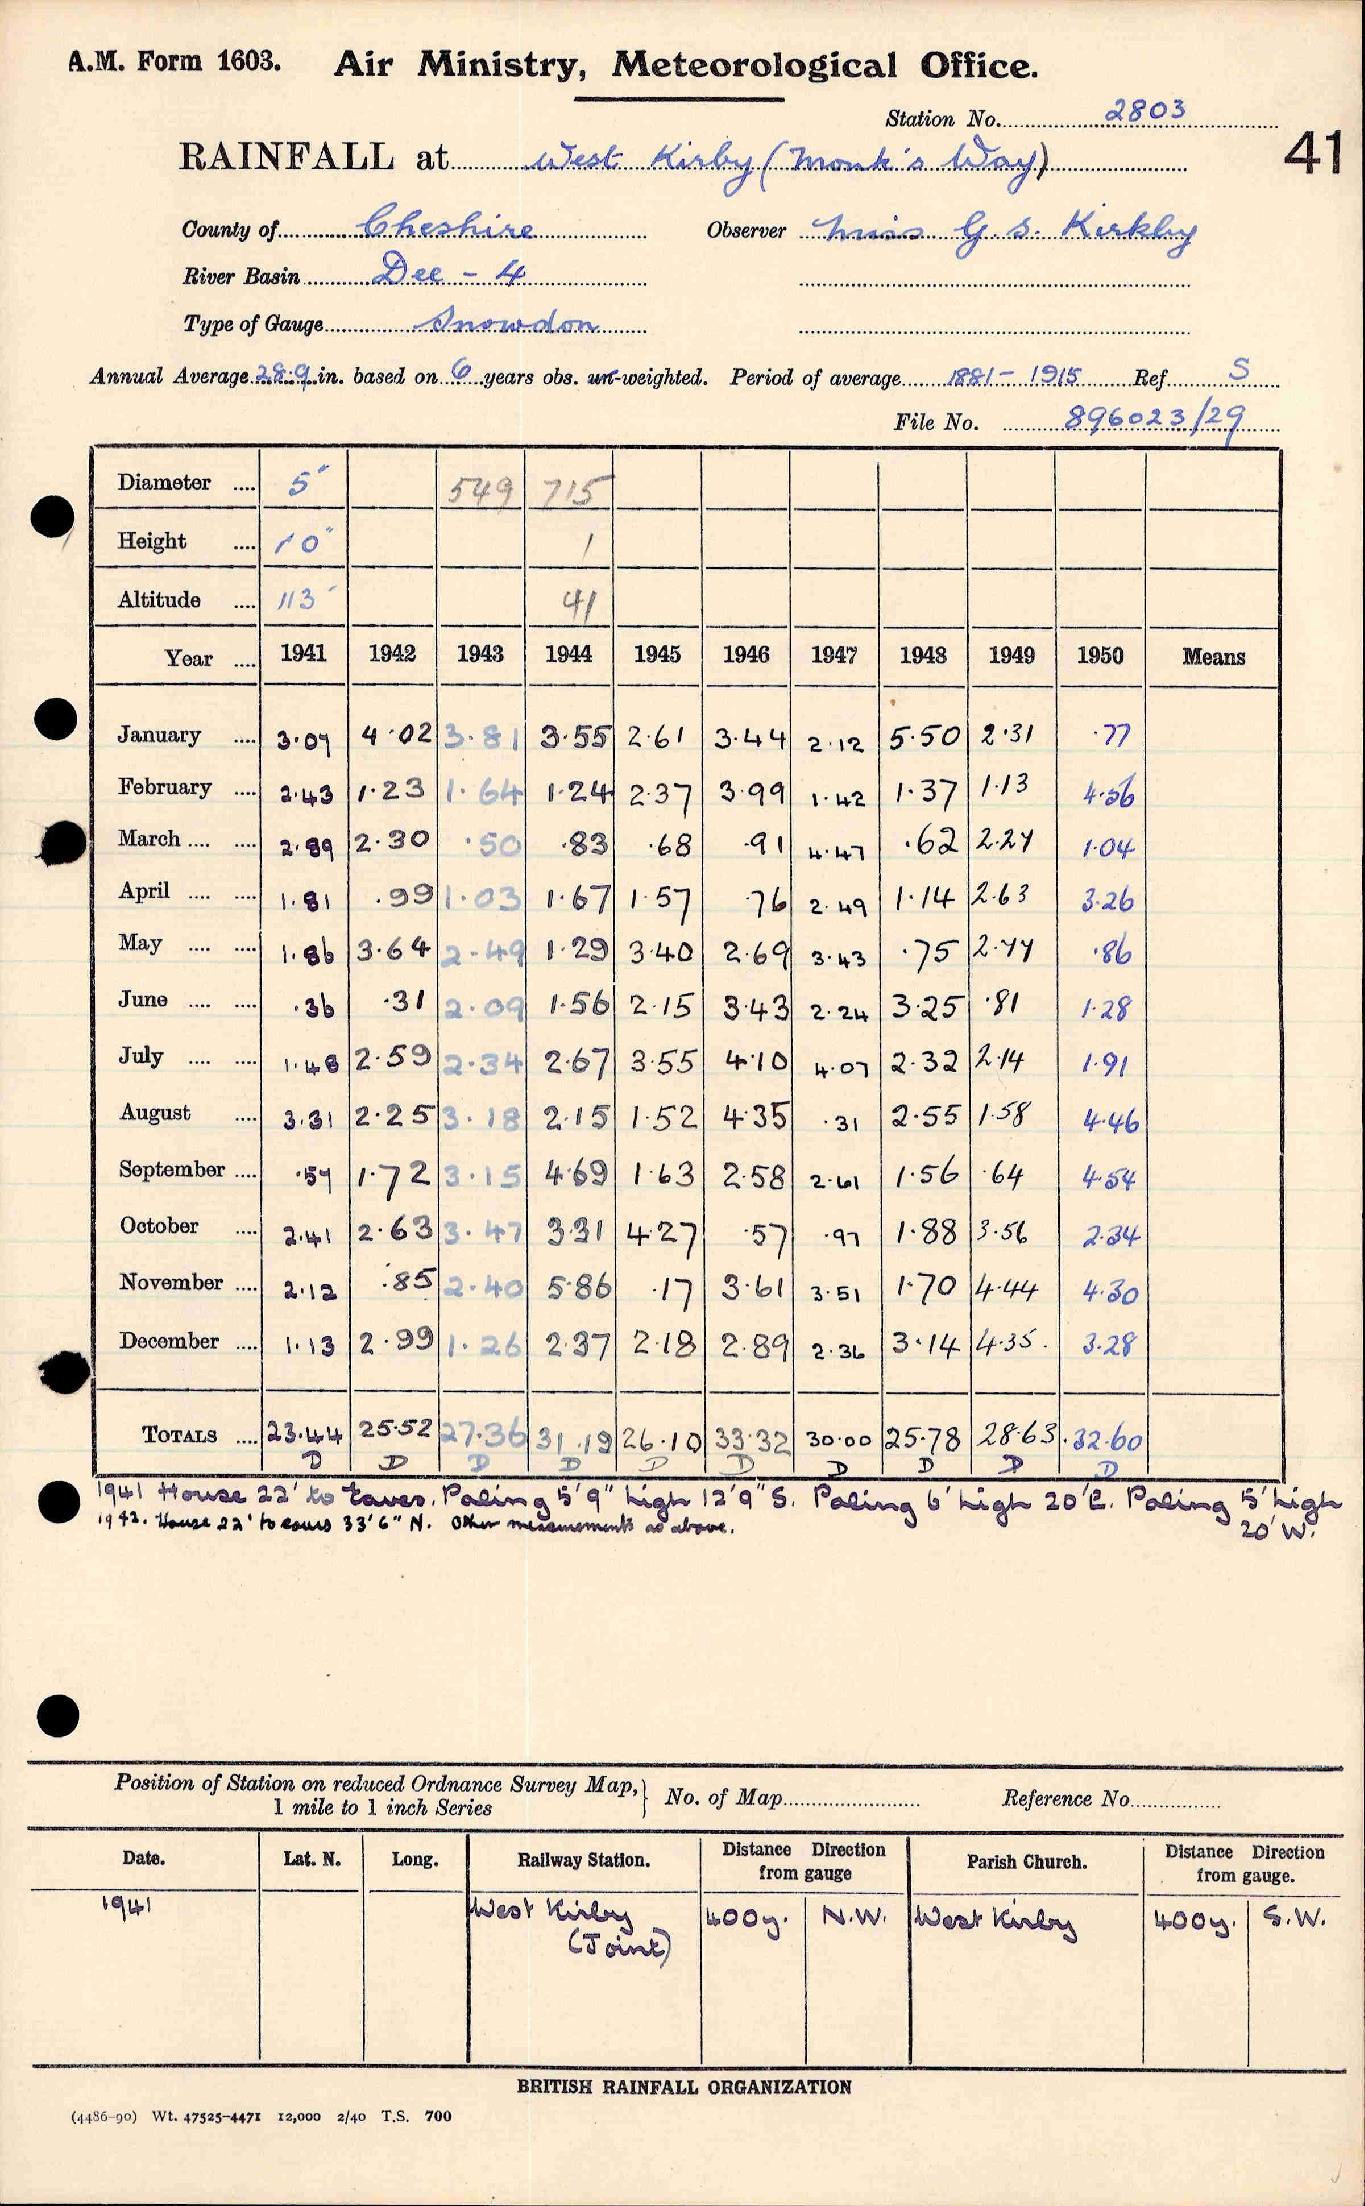 A.M. Form 1603. Air Ministry, Meteorological Office.
Station No. 2803
41
RAINFALL at West Kirby (Monk's Way)
County of Cheshire Observer Miss G. S. Kirkby
River Basin Dee - 4
Type of Gauge Snowdon
Annual Average 28.9 in. based on 6 years obs. un-weighted. Period of average 1881 - 1915 Ref. S
File No. 896023/29
Diameter .... 5" 549 715
Height .... 10" 1
Altitude .... 113' 41
Year .... 1941 1942 1943 1944 1945 1946 1947 1948 1949 1950 Means
January .... 3.07 4.02 3.81 3.55 2.61 3.44 2.12 5.50 2.31 .77
February .... 2.43 1.23 1.64 1.24 2.37 3.99 1.42 1.37 1.13 4.56
March .... .... 2.89 2.30 .50 .83 .68 .91 4.47 .62 2.27 1.04
April .... .... 1.81 .99 1.03 1.67 1.57 .76 2.49 1.14 2.63 3.26
May .... .... 1.86 3.64 2.49 1.29 3.40 2.69 3.43 .75 2.77 .86
June .... .... .36 .31 2.09 1.56 2.15 3.43 2.24 3.25 .81 1.28
July .... .... 1.48 2.59 2.34 2.67 3.55 4.10 4.07 2.32 2.14 1.91
August .... 3.31 2.25 3.18 2.15 1.52 4.35 .31 2.55 1.58 4.46
September .... .57 1.72 3.15 4.69 1.63 2.58 2.61 1.56 .64 4.54
October .... 2.41 2.63 3.47 3.31 4.27 .57 .97 1.88 3.56 2.34
November .... 2.12 .85 2.40 5.86 .17 3.61 3.51 1.70 4.44 4.30
December .... 1.13 2.99 1.26 2.37 2.18 2.89 2.36 3.14 4.35 3.28
TOTALS .... 23.44 25.52 27.36 31.19 26.10 33.32 30.00 25.78 28.63 32.60
D D D D D D D D D D
1941 House 22' to Eaves. Paling 5'9" high 12'9" S. Paling 6' high 20' E. Paling 5' high
20' W.
1942. House 22' to eaves 33'6" N. Other measurements as above.
Position of Station on reduced Ordnance Survey Map, } No. of Map Reference No.
1 mile to 1 inch Series
Date. Lat. N. Long. Railway Station. Distance Direction from gauge Parish Church. Distance Direction from gauge.
1941 West Kirby 400y. N.W. West Kirby 400y. S.W.
(Joint)
BRITISH RAINFALL ORGANIZATION
(4486-90) Wt. 47525-4471 12,000 2/40 T.S. 700